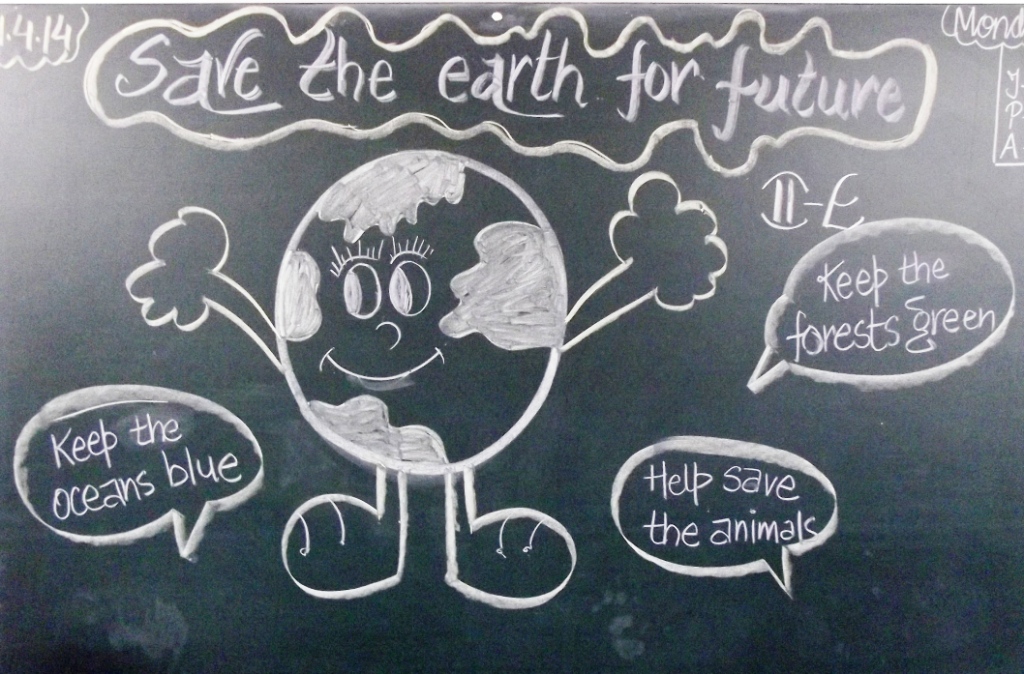 1.4.14
Save the earth for future
Mond
II-E
Keep the
forests green
Keep the
oceans blue
Help save
the animals
P
A